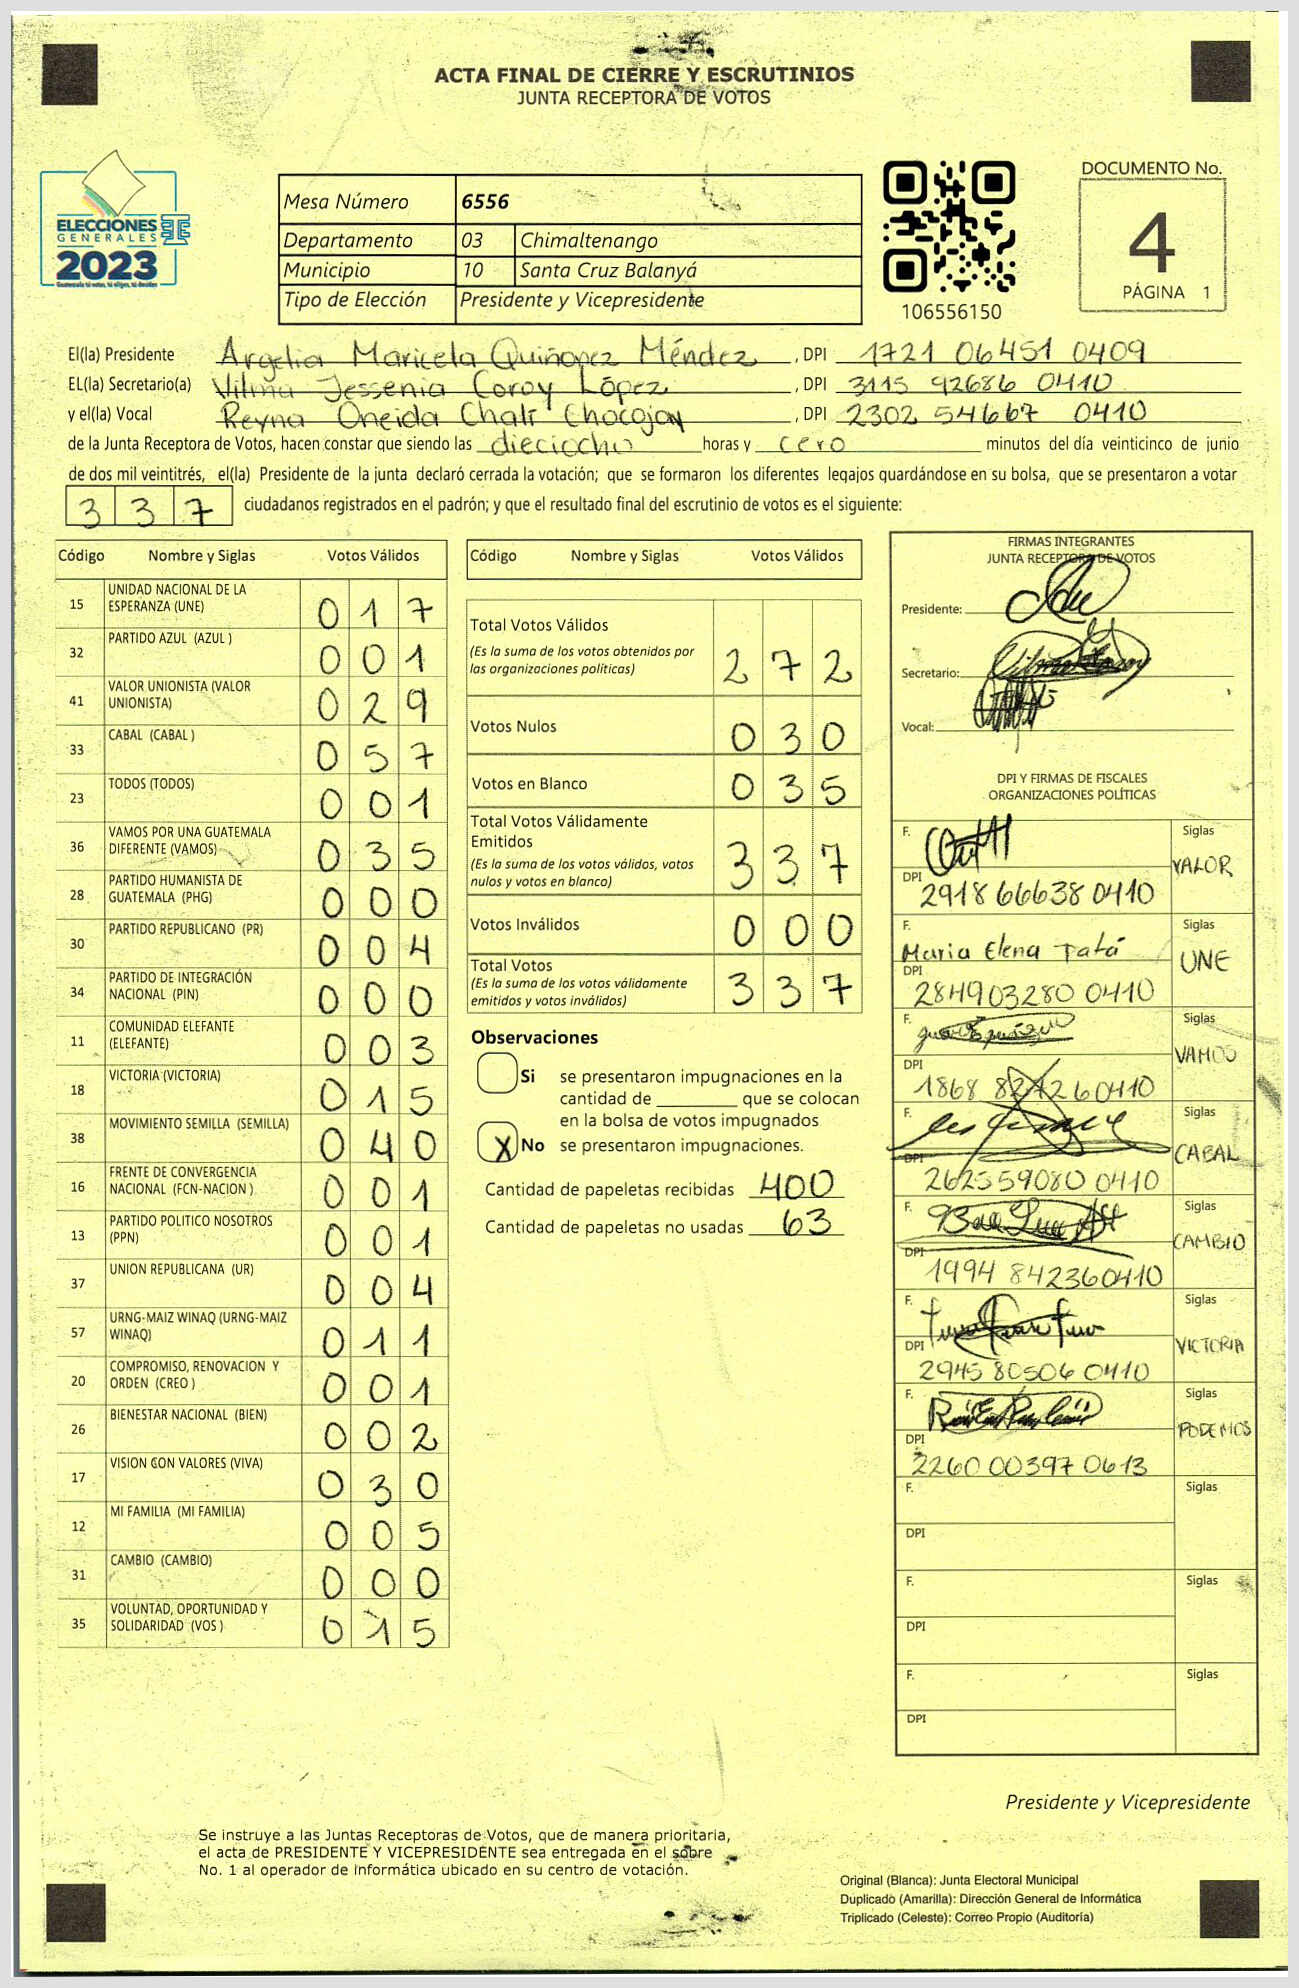 ACTA FINAL DE CIERRE Y ESCRUTINIOS
JUNTA RECEPTORA DE VOTOS
ELECCIONES
GENERALES
2023
Guatemala tú votas, tú eliges, tú decides
Mesa Número 6556
Departamento 03 Chimaltenango
Municipio 10 Santa Cruz Balanyá
Tipo de Elección Presidente y Vicepresidente
106556150
DOCUMENTO No.
4
PÁGINA 1
El(la) Presidente Argelia Maricela Quiñonez Méndez, DPI 1721 06451 0409
EL(la) Secretario(a) Vilma Jessenia Coroy López, DPI 3115 92686 0410
y el(la) Vocal Reyna Oneida Chalí Chocojay, DPI 2302 54667 0410
de la Junta Receptora de Votos, hacen constar que siendo las dieciocho horas y cero minutos del día veinticinco de junio
de dos mil veintitrés, el(la) Presidente de la junta declaró cerrada la votación; que se formaron los diferentes legajos quardándose en su bolsa, que se presentaron a votar
337 ciudadanos registrados en el padrón; y que el resultado final del escrutinio de votos es el siguiente:
Código Nombre y Siglas Votos Válidos
15 UNIDAD NACIONAL DE LA ESPERANZA (UNE) 017
32 PARTIDO AZUL (AZUL ) 001
41 VALOR UNIONISTA (VALOR UNIONISTA) 029
33 CABAL (CABAL ) 057
23 TODOS (TODOS) 001
36 VAMOS POR UNA GUATEMALA DIFERENTE (VAMOS) 035
28 PARTIDO HUMANISTA DE GUATEMALA (PHG) 000
30 PARTIDO REPUBLICANO (PR) 004
34 PARTIDO DE INTEGRACIÓN NACIONAL (PIN) 000
11 COMUNIDAD ELEFANTE (ELEFANTE) 003
18 VICTORIA (VICTORIA) 015
38 MOVIMIENTO SEMILLA (SEMILLA) 040
16 FRENTE DE CONVERGENCIA NACIONAL (FCN-NACION ) 001
13 PARTIDO POLITICO NOSOTROS (PPN) 001
37 UNION REPUBLICANA (UR) 004
57 URNG-MAIZ WINAQ (URNG-MAIZ WINAQ) 011
20 COMPROMISO, RENOVACION Y ORDEN (CREO ) 001
26 BIENESTAR NACIONAL (BIEN) 002
17 VISION CON VALORES (VIVA) 030
12 MI FAMILIA (MI FAMILIA) 005
31 CAMBIO (CAMBIO) 000
35 VOLUNTAD, OPORTUNIDAD Y SOLIDARIDAD (VOS ) 015
Código Nombre y Siglas Votos Válidos
Total Votos Válidos
(Es la suma de los votos obtenidos por las organizaciones políticas) 272
Votos Nulos 030
Votos en Blanco 035
Total Votos Válidamente Emitidos
(Es la suma de los votos válidos, votos nulos y votos en blanco) 337
Votos Inválidos 000
Total Votos
(Es la suma de los votos válidamente emitidos y votos inválidos) 337
Observaciones
Si se presentaron impugnaciones en la
cantidad de ________ que se colocan
en la bolsa de votos impugnados
X No se presentaron impugnaciones.
Cantidad de papeletas recibidas 400
Cantidad de papeletas no usadas 63
FIRMAS INTEGRANTES
JUNTA RECEPTORA DE VOTOS
Presidente:
Secretario:
Vocal:
DPI Y FIRMAS DE FISCALES
ORGANIZACIONES POLÍTICAS
F. Siglas VALOR
DPI 2918 66638 0410
F. Maria Elena Tatá Siglas UNE
DPI 2849 03280 0410
F. Siglas VAMOS
DPI 1868 82726 0410
F. Siglas CABAL
DPI 2625 59080 0410
F. Siglas CAMBIO
DPI 1994 84236 0410
F. Siglas VICTORIA
DPI 2945 80506 0410
F. Siglas PODEMOS
DPI 2260 00397 0613
F. Siglas
DPI
F. Siglas
DPI
F. Siglas
DPI
Presidente y Vicepresidente
Se instruye a las Juntas Receptoras de Votos, que de manera prioritaria,
el acta de PRESIDENTE Y VICEPRESIDENTE sea entregada en el sobre
No. 1 al operador de informática ubicado en su centro de votación.
Original (Blanca): Junta Electoral Municipal
Duplicado (Amarilla): Dirección General de Informática
Triplicado (Celeste): Correo Propio (Auditoría)